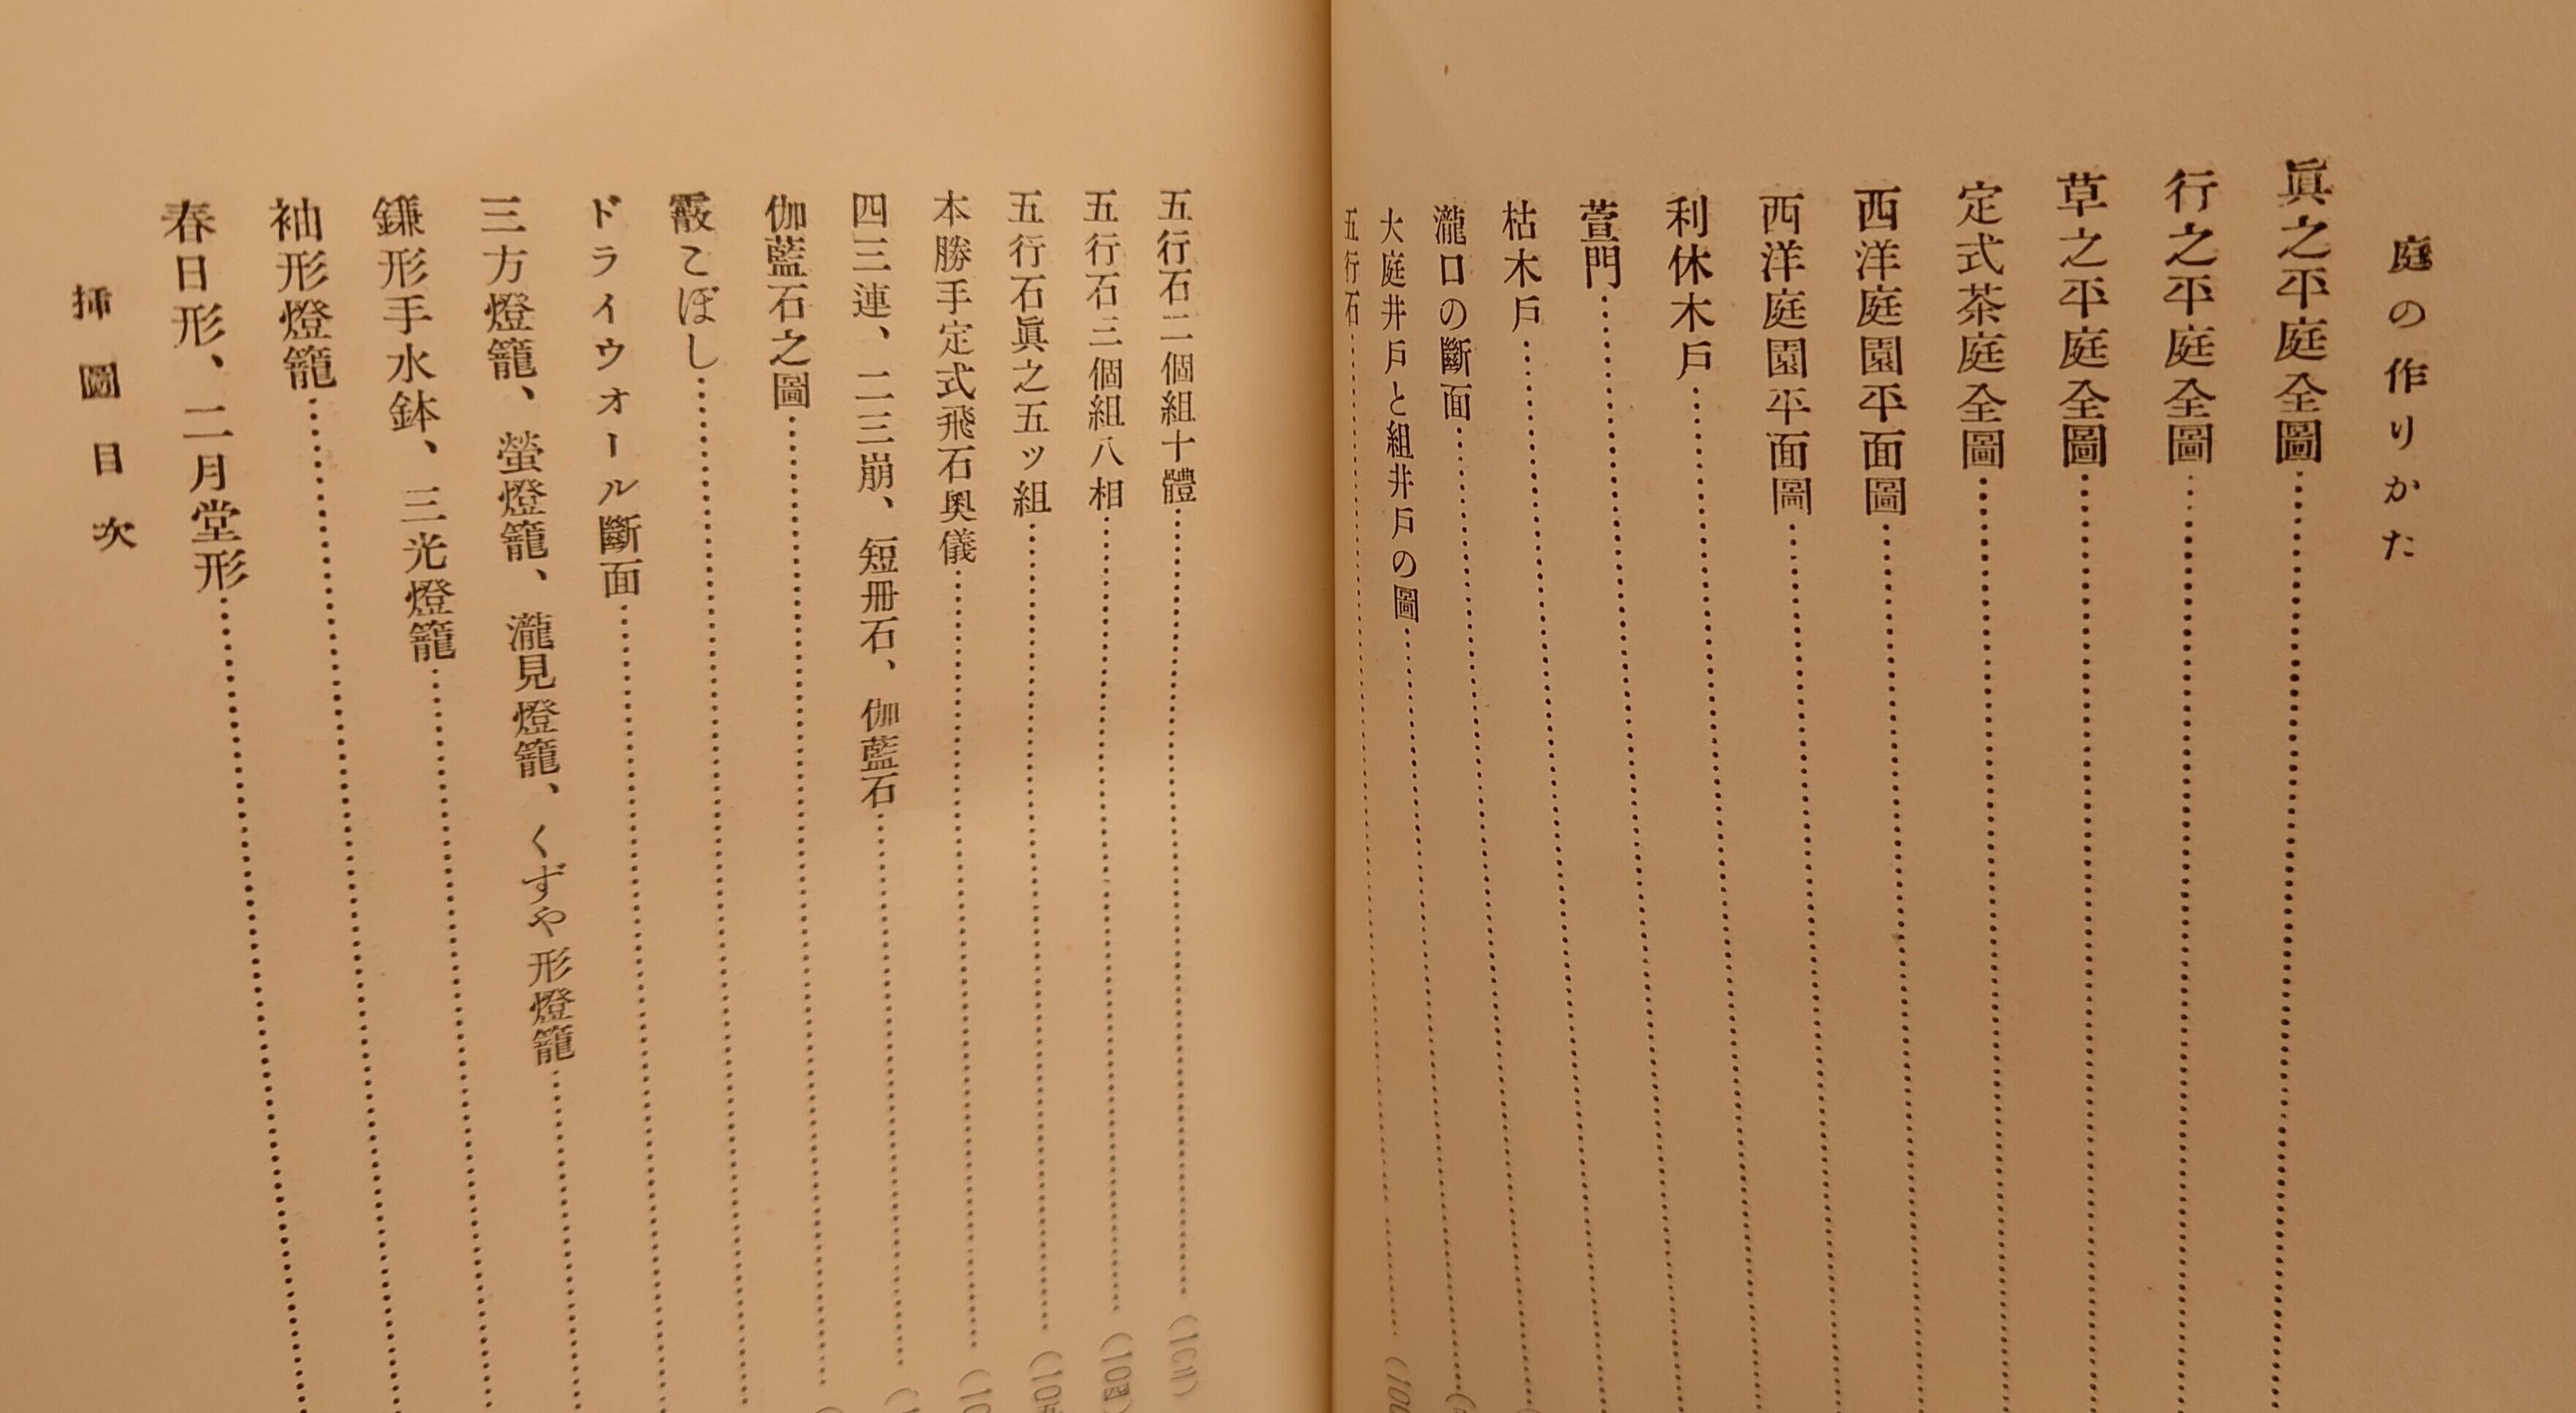 庭の作りかた
眞之平庭全圖
行之平庭全圖
草之平庭全圖
定式茶庭全圖
西洋庭園平面圖
西洋庭園平面圖
利休木戶
萱門
枯木戶
瀧口の斷面
大庭井戶と組井戶の圖
五行石
五行石二個組十體
五行石三個組八相
五行石眞之五ッ組
本勝手定式飛石奧儀
四三連、二三崩、短冊石、伽藍石
伽藍石之圖
霰こぼし
ドライウォール斷面
三方燈籠、螢燈籠、瀧見燈籠、くずや形燈籠
鎌形手水鉢、三光燈籠
袖形燈籠
春日形、二月堂形
揷圖目次